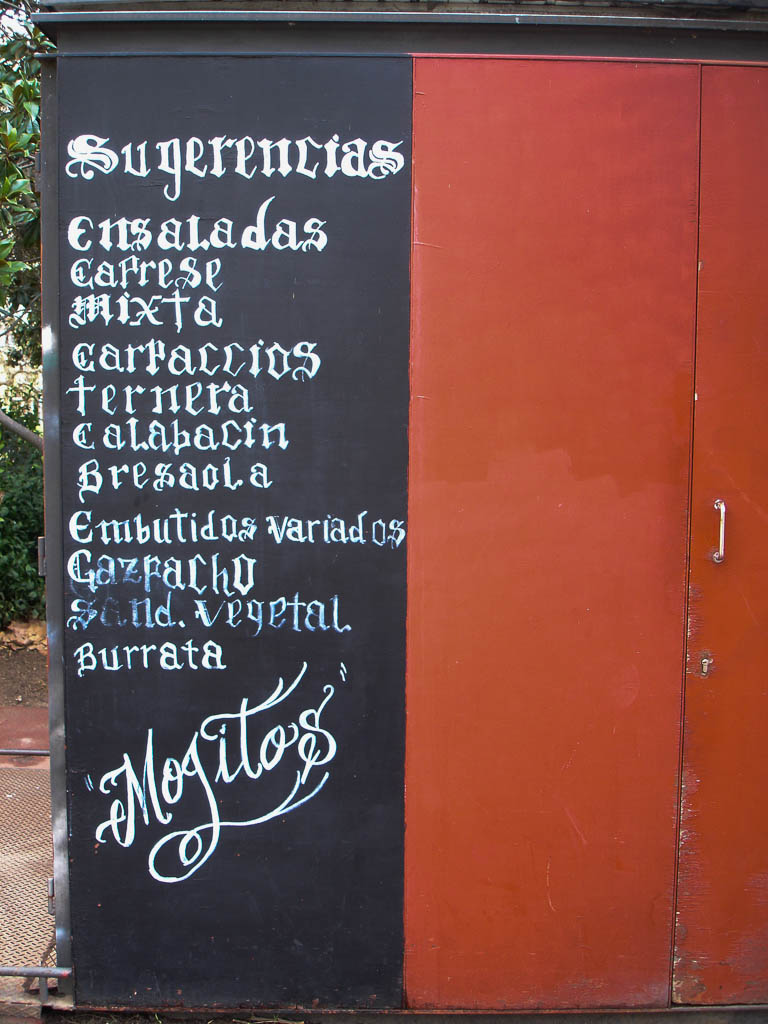 Sugerencias
Ensaladas
Caprese
Mixta
Carpaccios
ternera
Calabacin
Bresaola
Embutidos variados
Gazpacho
Sand. Vegetal
Burrata
"Mojitos"